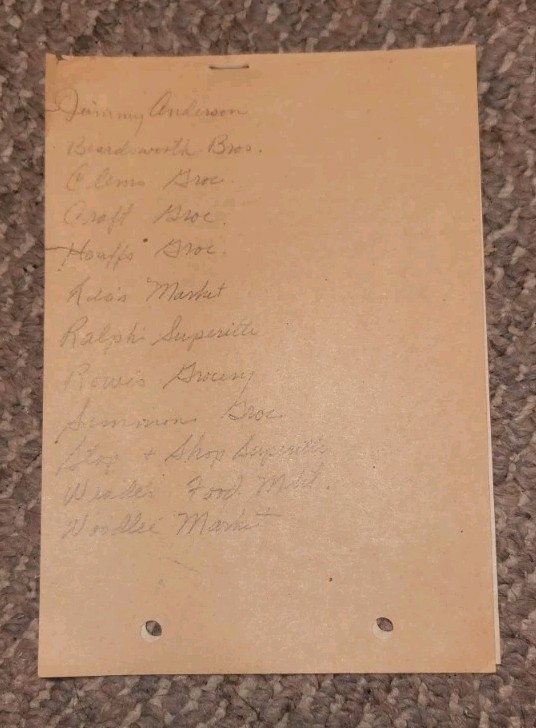 Jimmy Anderson
Beardsworth Bros.
Clems Groc.
Craft Groc.
Houffs Groc.
Market
Ralphs Superette
Rowe's Grocery
Simmons Groc.
Stop + Shop Superette
Food Mkt.
Market